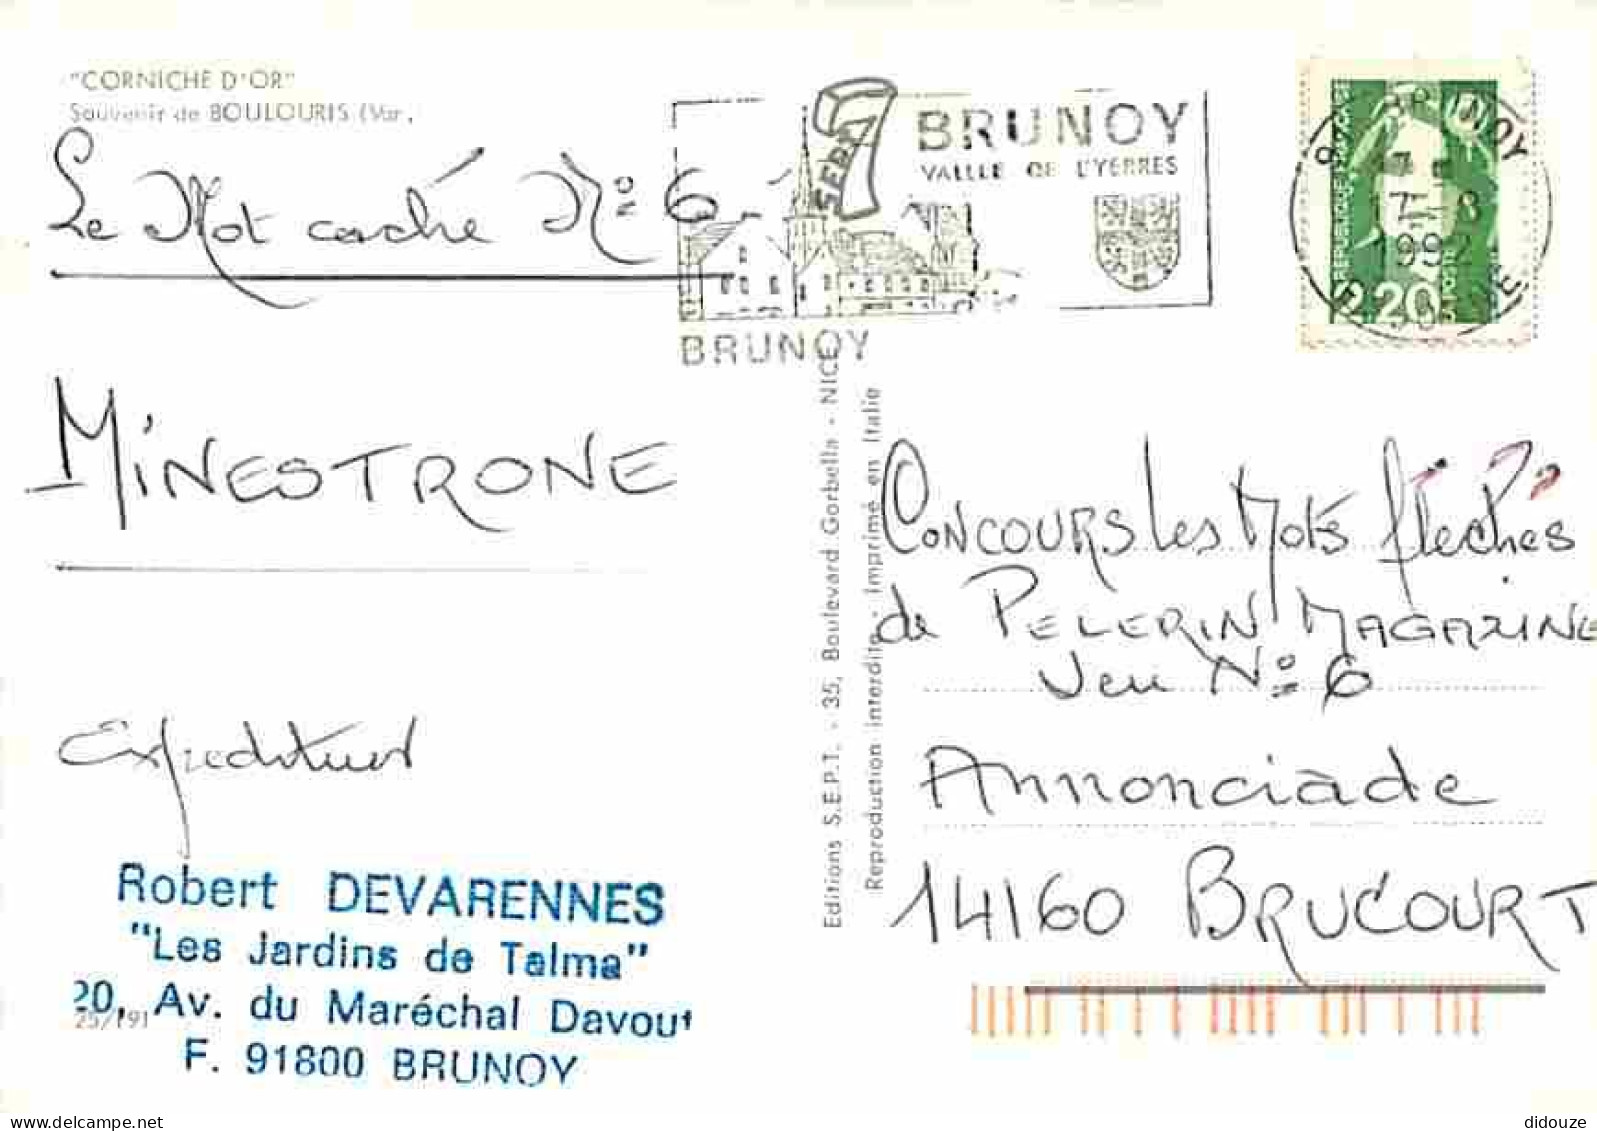 "CORNICHE D'OR"
Souvenir de BOULOURIS (Var)
Le Mot caché N° 6
MINESTRONE
Expediteur
Robert DEVARENNES
"Les Jardins de Talma"
20, Av. du Maréchal Davout
F. 91800 BRUNOY
25/191
7
BRUNOY
VALLEE DE L'YERRES
BRUNOY
Editions S.E.P.T. - 35, Boulevard Gorbella - NICE
Reproduction interdite - Imprimé en Italie
91 BRUNOY
7-8
1992
ESSONNE
REPUBLIQUE FRANÇAISE
2,20
LA POSTE
CONCOURS Les Mots fléchés
de PELERIN MAGAZINE
Jeu N° 6
Annonciade
14160 BRUCOURT
didouze